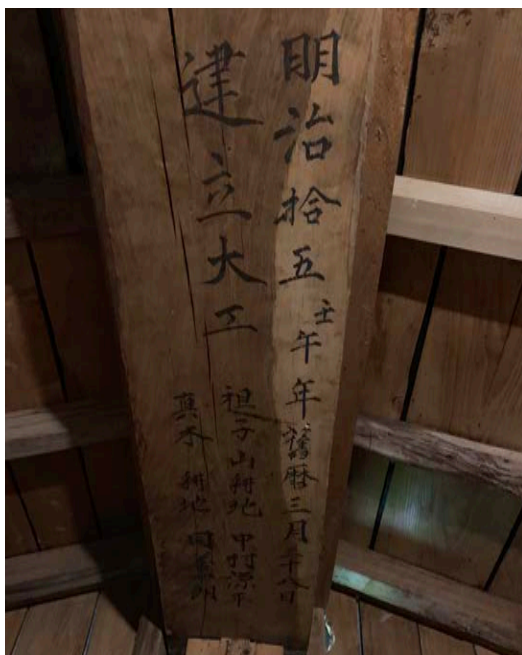 明治拾五壬午年舊暦三月二十八日
建立大工
祖子山耕地 中村源
真木 耕地